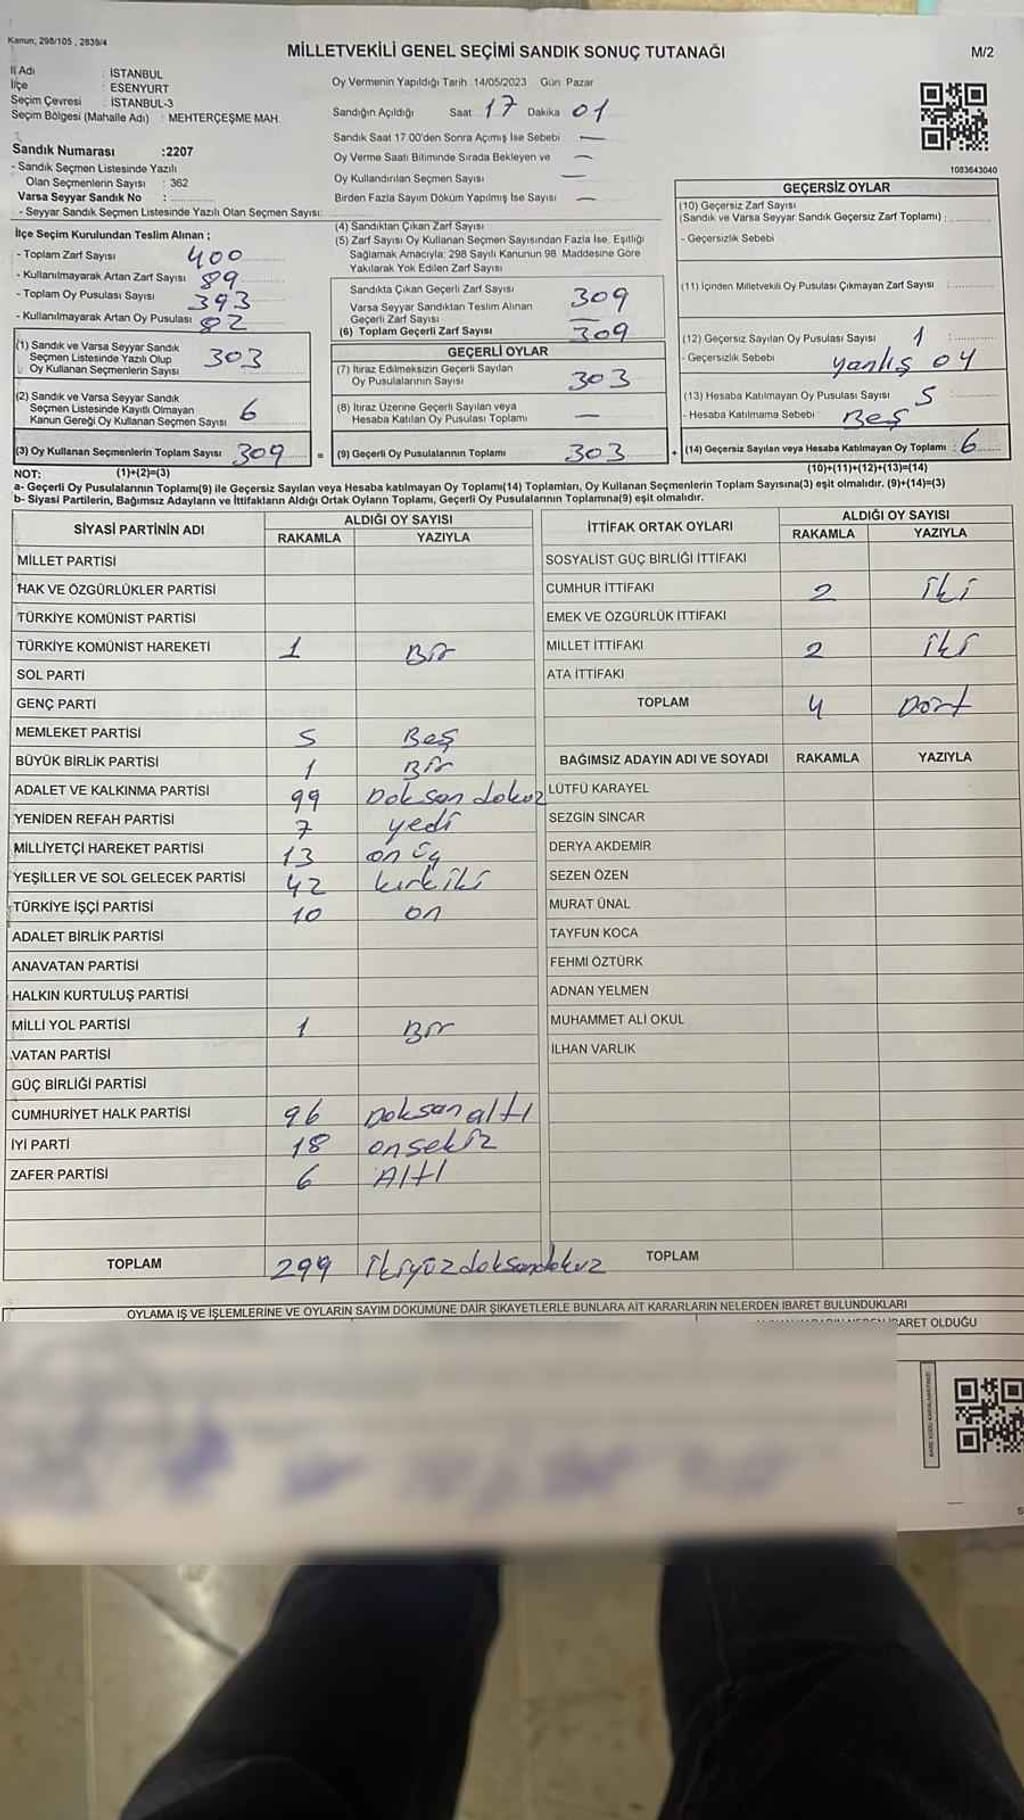 Kanun; 298/105 , 2839/4
MİLLETVEKİLİ GENEL SEÇİMİ SANDIK SONUÇ TUTANAĞI
M/2
İl Adı : İSTANBUL
İlçe : ESENYURT
Seçim Çevresi : İSTANBUL-3
Seçim Bölgesi (Mahalle Adı) : MEHTERÇEŞME MAH.
Sandık Numarası :2207
- Sandık Seçmen Listesinde Yazılı
Olan Seçmenlerin Sayısı : 362
Varsa Seyyar Sandık No :
- Seyyar Sandık Seçmen Listesinde Yazılı Olan Seçmen Sayısı:
Oy Vermenin Yapıldığı Tarih 14/05/2023 Gün Pazar
Sandığın Açıldığı Saat 17 Dakika 01
Sandık Saat 17.00'den Sonra Açımış İse Sebebi —
Oy Verme Saati Bitiminde Sırada Bekleyen ve —
Oy Kullandırılan Seçmen Sayısı —
Birden Fazla Sayım Döküm Yapılmış İse Sayısı —
1083643040
İlçe Seçim Kurulundan Teslim Alınan ;
- Toplam Zarf Sayısı 400
- Kullanılmayarak Artan Zarf Sayısı 89
- Toplam Oy Pusulası Sayısı 393
- Kullanılmayarak Artan Oy Pusulası 82
(1) Sandık ve Varsa Seyyar Sandık
Seçmen Listesinde Yazılı Olup 303
Oy Kullanan Seçmenlerin Sayısı
(2) Sandık ve Varsa Seyyar Sandık
Seçmen Listesinde Kayıtlı Olmayan 6
Kanun Gereği Oy Kullanan Seçmen Sayısı
(3) Oy Kullanan Seçmenlerin Toplam Sayısı 309
(4) Sandıktan Çıkan Zarf Sayısı
(5) Zarf Sayısı Oy Kullanan Seçmen Sayısından Fazla İse, Eşitliği
Sağlamak Amacıyla; 298 Sayılı Kanunun 98. Maddesine Göre
Yakılarak Yok Edilen Zarf Sayısı
Sandıkta Çıkan Geçerli Zarf Sayısı 309
Varsa Seyyar Sandıktan Teslim Alınan
Geçerli Zarf Sayısı —
(6) Toplam Geçerli Zarf Sayısı 309
GEÇERLİ OYLAR
(7) İtiraz Edilmeksizin Geçerli Sayılan
Oy Pusulalarının Sayısı 303
(8) İtiraz Üzerine Geçerli Sayılan veya
Hesaba Katılan Oy Pusulası Toplamı —
= (9) Geçerli Oy Pusulalarının Toplamı 303
GEÇERSİZ OYLAR
(10) Geçersiz Zarf Sayısı
(Sandık ve Varsa Seyyar Sandık Geçersiz Zarf Toplamı) :
- Geçersizlik Sebebi
(11) İçinden Milletvekili Oy Pusulası Çıkmayan Zarf Sayısı
(12) Geçersiz Sayılan Oy Pusulası Sayısı 1
- Geçersizlik Sebebi yanlış oy
(13) Hesaba Katılmayan Oy Pusulası Sayısı 5
- Hesaba Katılmama Sebebi Beş
+ (14) Geçersiz Sayılan veya Hesaba Katılmayan Oy Toplamı : 6
NOT: (1)+(2)=(3)
(10)+(11)+(12)+(13)=(14)
a- Geçerli Oy Pusulalarının Toplamı(9) ile Geçersiz Sayılan veya Hesaba katılmayan Oy Toplamı(14) Toplamları, Oy Kullanan Seçmenlerin Toplam Sayısına(3) eşit olmalıdır. (9)+(14)=(3)
b- Siyasi Partilerin, Bağımsız Adayların ve İttifakların Aldığı Ortak Oyların Toplamı, Geçerli Oy Pusulalarının Toplamına(9) eşit olmalıdır.
SİYASİ PARTİNİN ADI
ALDIĞI OY SAYISI
RAKAMLA YAZIYLA
MİLLET PARTİSİ
HAK VE ÖZGÜRLÜKLER PARTİSİ
TÜRKİYE KOMÜNİST PARTİSİ
TÜRKİYE KOMÜNİST HAREKETİ 1 Bir
SOL PARTİ
GENÇ PARTİ
MEMLEKET PARTİSİ 5 Beş
BÜYÜK BİRLİK PARTİSİ 1 Bir
ADALET VE KALKINMA PARTİSİ 99 Doksan dokuz
YENİDEN REFAH PARTİSİ 7 yedi
MİLLİYETÇİ HAREKET PARTİSİ 13 on üç
YEŞİLLER VE SOL GELECEK PARTİSİ 42 kırk iki
TÜRKİYE İŞÇİ PARTİSİ 10 on
ADALET BİRLİK PARTİSİ
ANAVATAN PARTİSİ
HALKIN KURTULUŞ PARTİSİ
MİLLİ YOL PARTİSİ 1 Bir
VATAN PARTİSİ
GÜÇ BİRLİĞİ PARTİSİ
CUMHURİYET HALK PARTİSİ 96 Doksan altı
İYİ PARTİ 18 onsekiz
ZAFER PARTİSİ 6 Altı
TOPLAM 299 ikiyüzdoksandokuz
İTTİFAK ORTAK OYLARI
ALDIĞI OY SAYISI
RAKAMLA YAZIYLA
SOSYALİST GÜÇ BİRLİĞİ İTTİFAKI
CUMHUR İTTİFAKI 2 iki
EMEK VE ÖZGÜRLÜK İTTİFAKI
MİLLET İTTİFAKI 2 iki
ATA İTTİFAKI
TOPLAM 4 Dört
BAĞIMSIZ ADAYIN ADI VE SOYADI RAKAMLA YAZIYLA
LÜTFÜ KARAYEL
SEZGİN SİNCAR
DERYA AKDEMİR
SEZEN ÖZEN
MURAT ÜNAL
TAYFUN KOCA
FEHMİ ÖZTÜRK
ADNAN YELMEN
MUHAMMET ALİ OKUL
İLHAN VARLIK
TOPLAM
OYLAMA İŞ VE İŞLEMLERİNE VE OYLARIN SAYIM DÖKÜMÜNE DAİR ŞİKAYETLERLE BUNLARA AİT KARARLARIN NELERDEN İBARET BULUNDUKLARI
BARET OLDUĞU